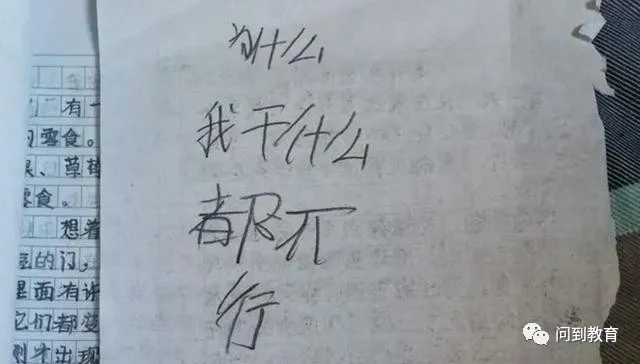 为什么
我干什么
都不
行
有一
的零食。
果、草莓
零食。
想着
的门,
里面有许
它们都变
刚才出现
问到教育